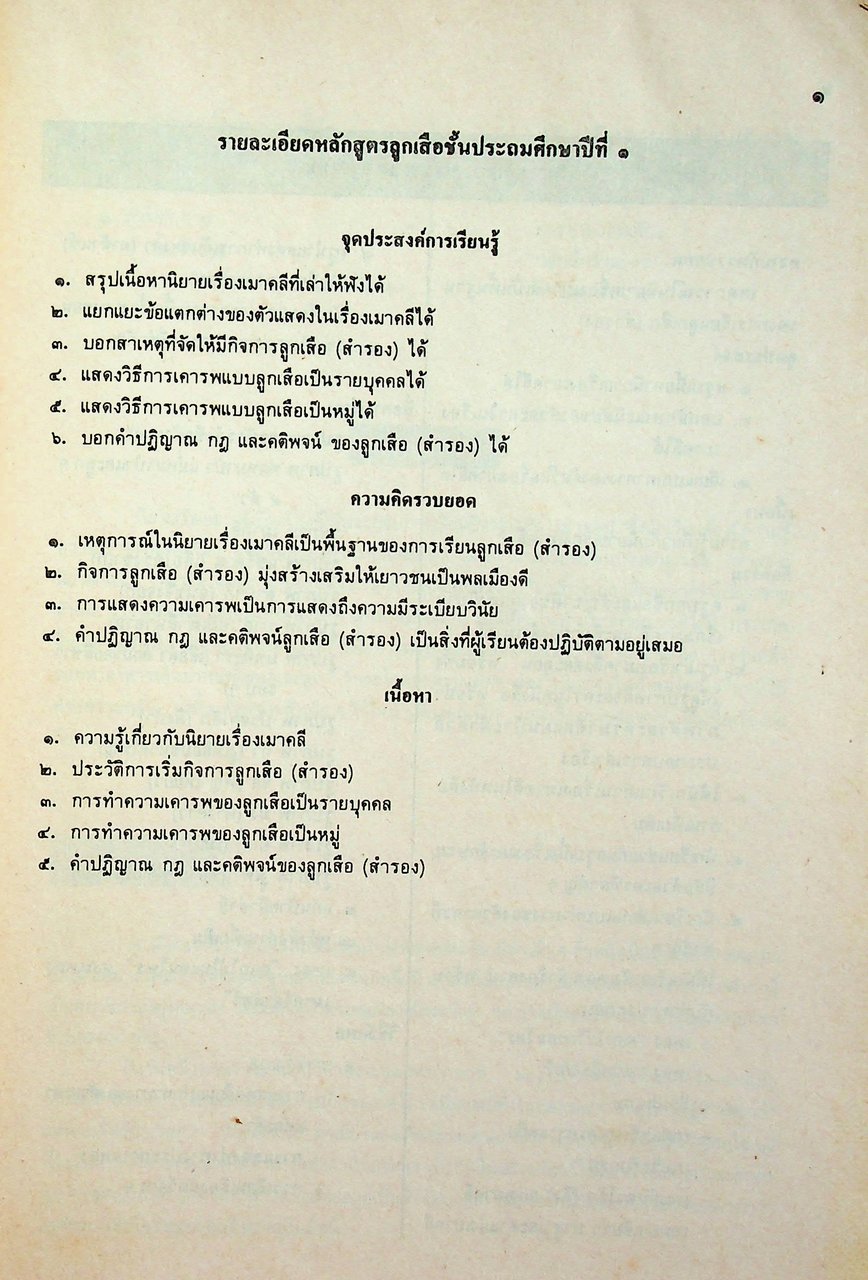 ๑
รายละเอียดหลักสูตรลูกเสือชั้นประถมศึกษาปีที่ ๑
จุดประสงค์การเรียนรู้
๑. สรุปเนื้อหานิยายเรื่องเมาคลีที่เล่าให้ฟังได้
๒. แยกแยะข้อแตกต่างของตัวแสดงในเรื่องเมาคลีได้
๓. บอกสาเหตุที่จัดให้มีกิจการลูกเสือ (สำรอง) ได้
๔. แสดงวิธีการเคารพแบบลูกเสือเป็นรายบุคคลได้
๕. แสดงวิธีการเคารพแบบลูกเสือเป็นหมู่ได้
๖. บอกคำปฏิญาณ กฎ และคติพจน์ ของลูกเสือ (สำรอง) ได้
ความคิดรวบยอด
๑. เหตุการณ์ในนิยายเรื่องเมาคลีเป็นพื้นฐานของการเรียนลูกเสือ (สำรอง)
๒. กิจการลูกเสือ (สำรอง) มุ่งสร้างเสริมให้เยาวชนเป็นพลเมืองดี
๓. การแสดงความเคารพเป็นการแสดงถึงความมีระเบียบวินัย
๔. คำปฏิญาณ กฎ และคติพจน์ลูกเสือ (สำรอง) เป็นสิ่งที่ผู้เรียนต้องปฏิบัติตามอยู่เสมอ
เนื้อหา
๑. ความรู้เกี่ยวกับนิยายเรื่องเมาคลี
๒. ประวัติการเริ่มกิจการลูกเสือ (สำรอง)
๓. การทำความเคารพของลูกเสือเป็นรายบุคคล
๔. การทำความเคารพของลูกเสือเป็นหมู่
๕. คำปฏิญาณ กฎ และคติพจน์ของลูกเสือ (สำรอง)